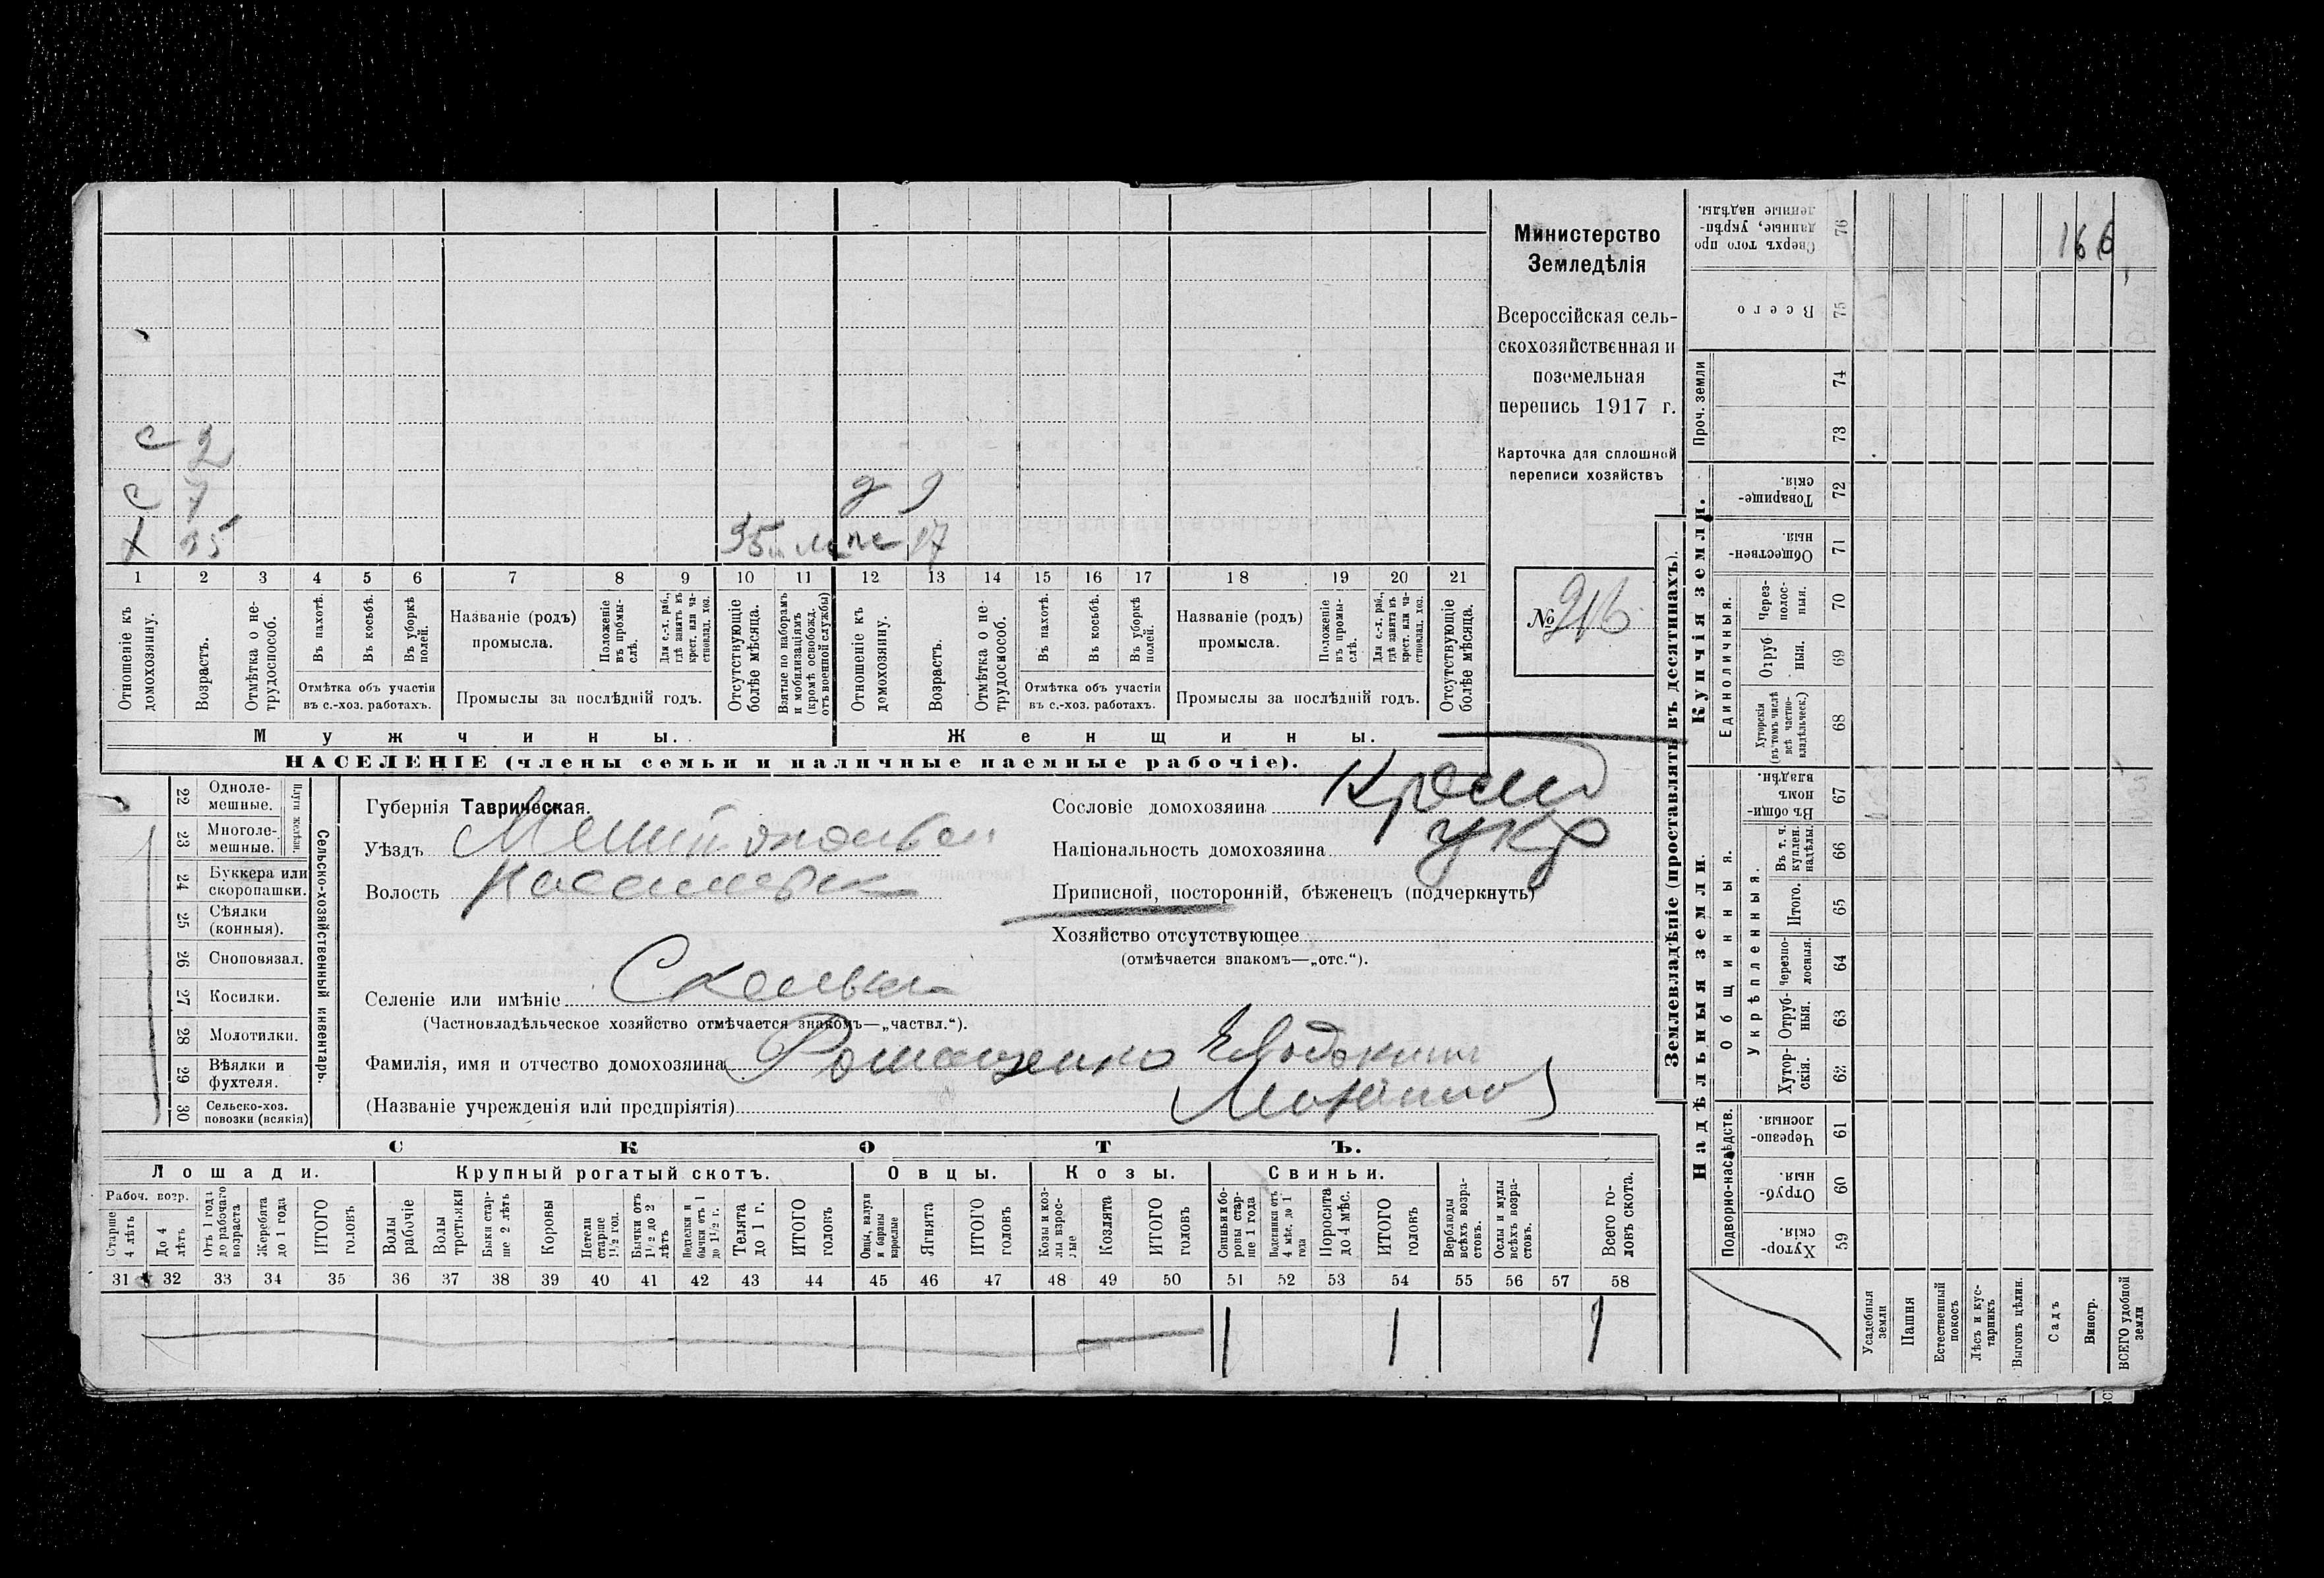 Министерство
Земледѣлія
Всероссійская сель-
скохозяйственная и
поземельная
перепись 1917 г.
Карточка для сплошной
переписи хозяйствъ
№ 216
с 2
с 7
х 35
д 9
1 2 3 4 5 6 7 8 9 10 11 12 13 14 15 16 17 18 19 20 21
Отношеніе къ домохозяину.
Возрастъ.
Отмѣтка о не-трудоспособ.
Въ пахотѣ.
Въ косьбѣ.
Въ уборкѣ полей.
Отмѣтка объ участіи
въ с.-хоз. работахъ.
Названіе (родъ)
промысла.
Положеніе въ промы-слѣ.
Для с.-х. раб., гдѣ занятъ въ крест. или ча-стновлад. хоз.
Промыслы за послѣдній годъ.
Отсутствующіе болѣе мѣсяца.
Взятые по наборамъ и мобилизаціямъ (кромѣ освобожд. отъ военной службы)
Отношеніе къ домохозяину.
Возрастъ.
Отмѣтка о не-трудоспособ.
Въ пахотѣ.
Въ косьбѣ.
Въ уборкѣ полей.
Отмѣтка объ участіи
въ с.-хоз. работахъ.
Названіе (родъ)
промысла.
Положеніе въ промы-слѣ.
Для с.-х. раб., гдѣ занята въ крест. или ча-стновлад. хоз.
Промыслы за послѣдній годъ.
Отсутствующіе болѣе мѣсяца.
Мужчины.
Женщины.
НАСЕЛЕНІЕ (члены семьи и наличные наемные рабочіе).
Сельско-хозяйственный инвентарь.
Плуги желѣзн.
22 Одноле-мешные.
23 Многоле-мешные.
24 Буккера или скоропашки.
25 Сѣялки (конныя).
26 Сноповязал.
27 Косилки.
28 Молотилки.
29 Вѣялки и фухтеля.
30 Сельско-хоз. повозки (всякія)
Губернія Таврическая.
Уѣздъ
Волость
Сословіе домохозяина
Національность домохозяина укр
Приписной, посторонній, бѣженецъ (подчеркнуть)
Хозяйство отсутствующее
(отмѣчается знакомъ—„отс.“).
Селеніе или имѣніе Скельки
(Частновладѣльческое хозяйство отмѣчается знакомъ—„частвл.“).
Фамилія, имя и отчество домохозяина Ромащенко
(Названіе учрежденія или предпріятія)
СКОТЪ.
Лошади.
Крупный рогатый скотъ.
Овцы.
Козы.
Свиньи.
Рабоч. возр.
Старше 4 лѣтъ
До 4 лѣтъ
Отъ 1 года до рабочаго возраста
Жеребята до 1 года
ИТОГО головъ
Волы рабочіе
Волы третьяки
Быки стар-ше 2 лѣтъ
Коровы
Нетели старше 1½ год.
Бычки отъ 1½ до 2 лѣтъ
Подтелки и бычки отъ 1 до 1½ г.
Телята до 1 г.
ИТОГО головъ
Овцы, валухи и бараны взрослые
Ягнята
ИТОГО головъ
Козы и коз-лы взрос-лые
Козлята
ИТОГО головъ
Свиньи и бо-ровы стар-ше 1 года
Подсвинки отъ 4 мѣс. до 1 года
Поросята до 4 мѣс.
ИТОГО головъ
Верблюды всѣхъ возра-стовъ.
Ослы и мулы всѣхъ возра-стовъ.
Всего го-ловъ скота.
31 32 33 34 35 36 37 38 39 40 41 42 43 44 45 46 47 48 49 50 51 52 53 54 55 56 57 58
1 1 1
Землевладѣніе (проставлять въ десятинахъ).
Купчія земли.
Надѣльныя земли.
166
76 Сверхъ того про-данные, укрѣп-ленные надѣлы.
75 Всего
Проч. земли
74
73
72 Товарище-скія.
71 Обществен-ныя.
Единоличныя.
70 Через-полос-ныя.
69 Отруб-ныя.
68 Хуторскія (въ томъ числѣ всѣ частно-владѣльческ.)
Общинныя.
67 Въ общи-номъ владѣн.
Укрѣпленныя.
66 Въ т. ч. куплен. надѣлы.
65 Итого.
64 Черезпо-лосныя.
63 Отруб-ныя.
62 Хутор-скія.
Подворно-наслѣдств.
61 Черезпо-лосныя.
60 Отруб-ныя.
59 Хутор-скія.
Усадебныя земли
Пашня
Естественный покосъ
Лѣсъ и кус-тарникъ
Выгонъ цѣлин.
Садъ
Виногр.
ВСЕГО удобной земли